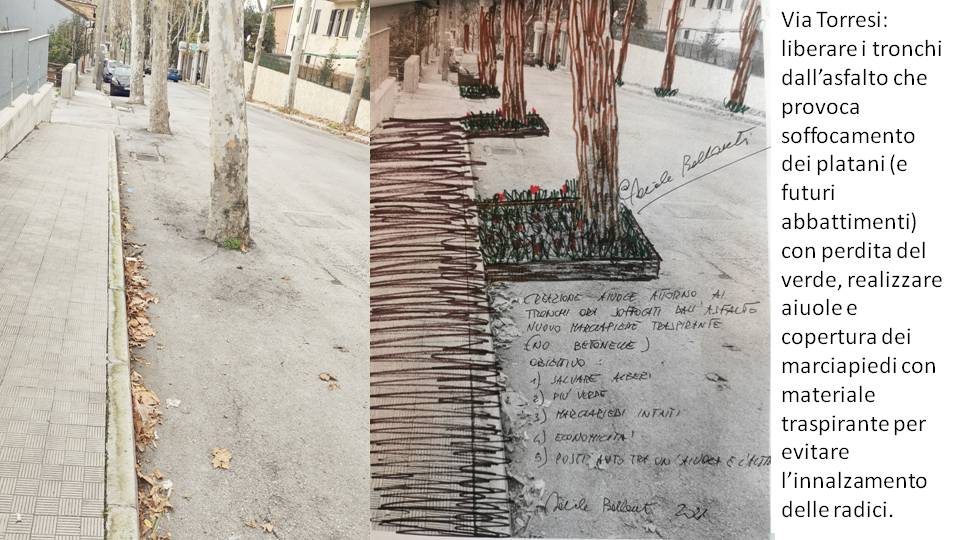 Via Torresi:
liberare i tronchi
dall'asfalto che
provoca
soffocamento
dei platani (e
futuri
abbattimenti)
con perdita del
verde, realizzare
aiuole e
copertura dei
marciapiedi con
materiale
traspirante per
evitare
l'innalzamento
delle radici.
CREAZIONE AIUOLE ATTORNO AI
TRONCHI ORA SOFFOCATI DALL'ASFALTO
NUOVO MARCIAPIEDE TRASPIRANTE
(NO BETONELLE)
OBIETTIVO:
1) SALVARE ALBERI
2) PIU' VERDE
3) MARCIAPIEDI INTATTI
4) ECONOMICITA'
5) POSTI AUTO TRA UN'AIUOLA E L'ALTRA